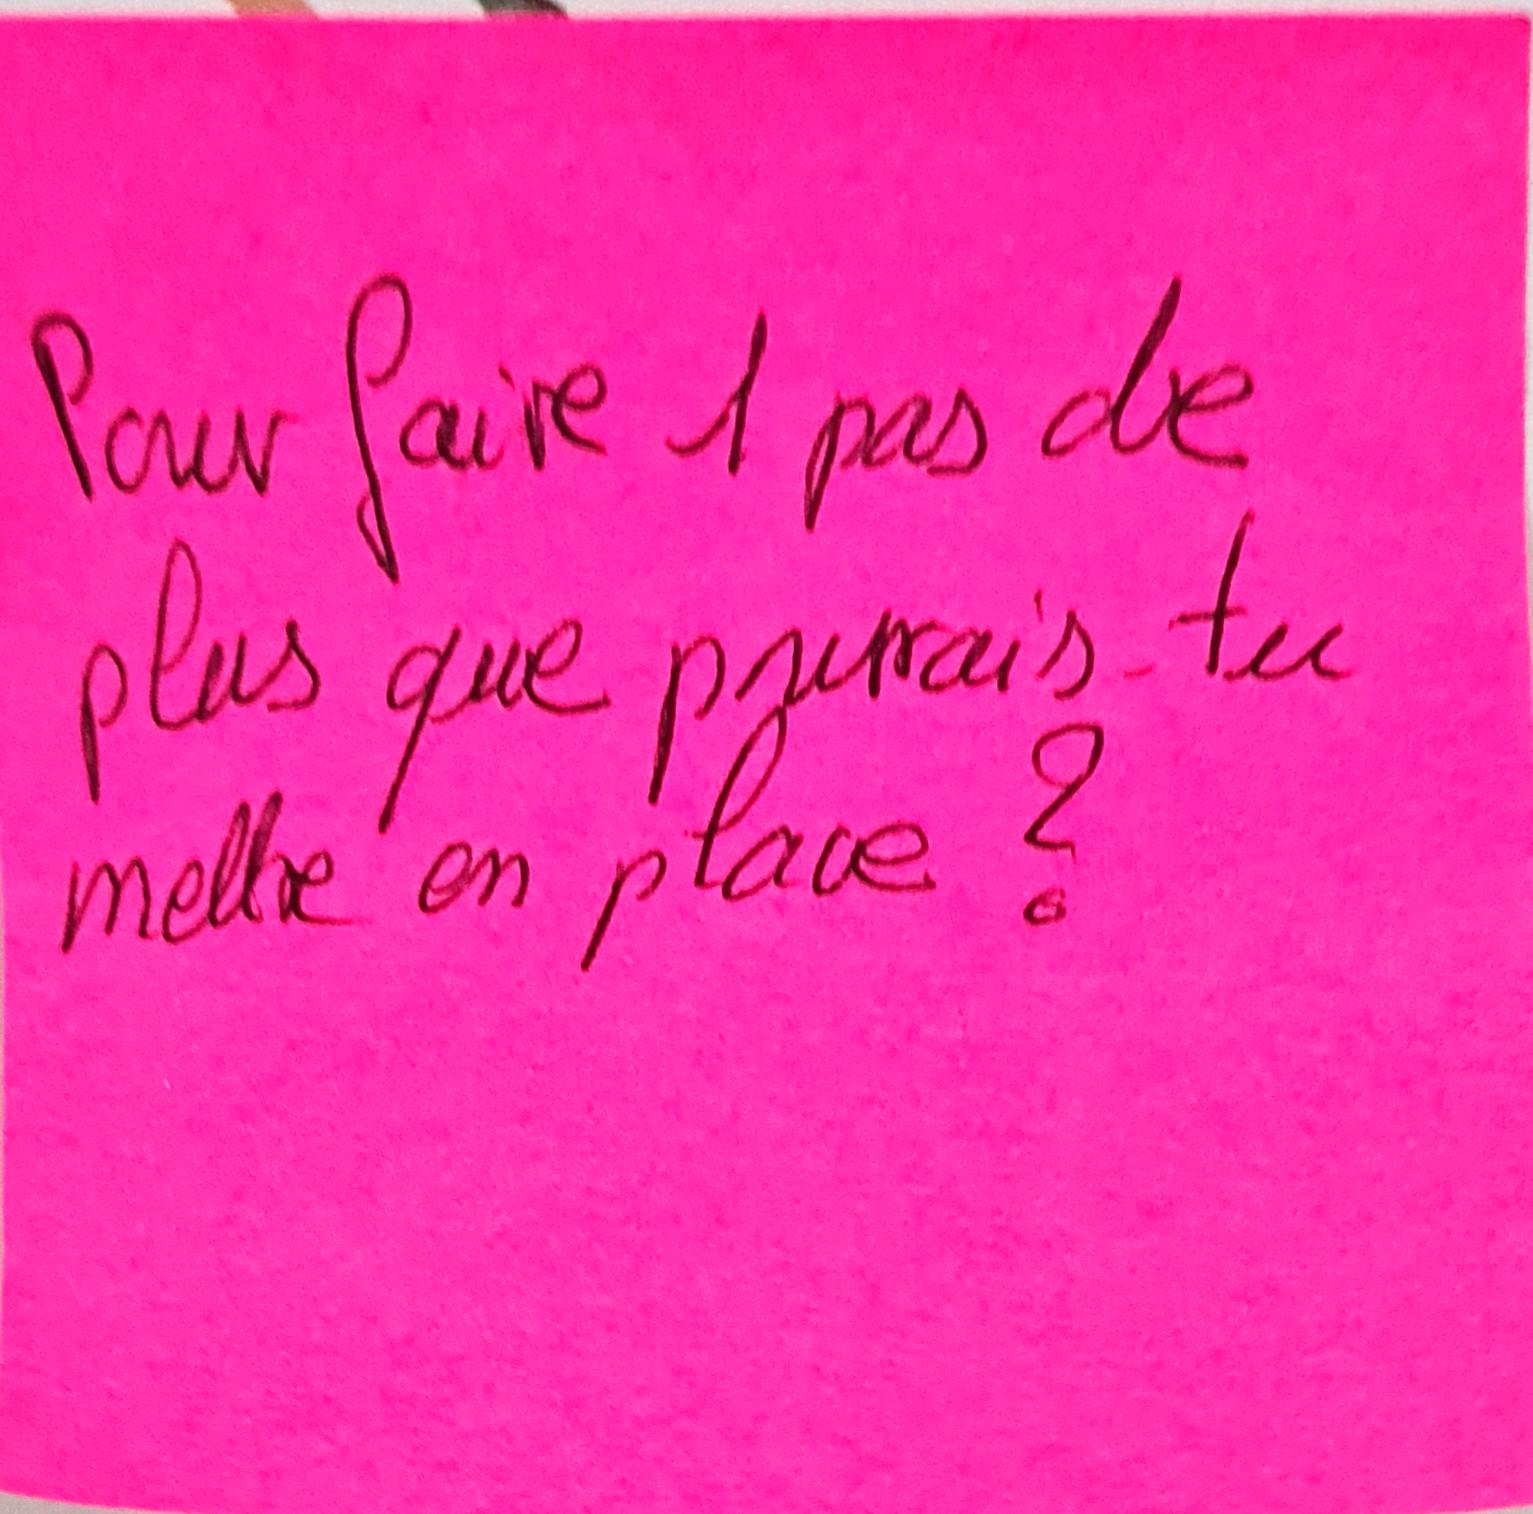 Pour faire 1 pas de
plus que pourrais-tu
mettre en place ?